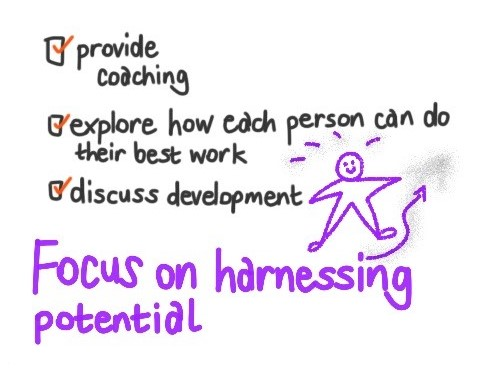 provide
coaching
explore how each person can do
their best work
discuss development
Focus on harnessing
potential